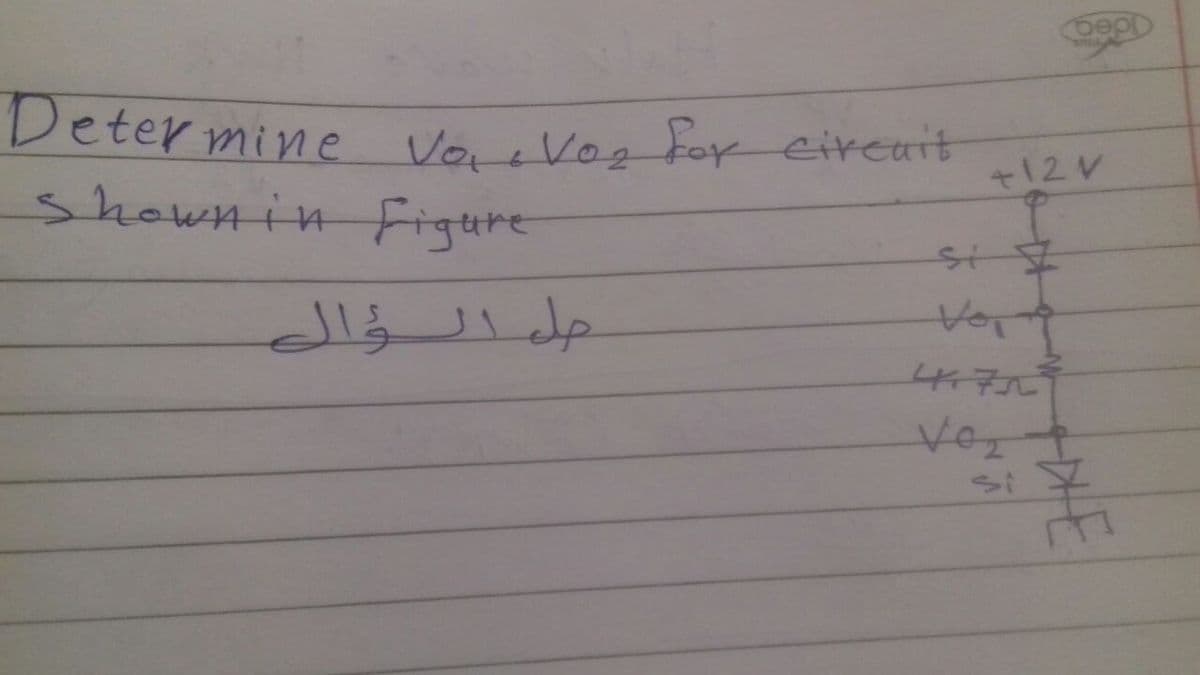 Determine Vo₁ & Vo₂ for circuit
shown in Figure
حل السؤال
+12 V
Si
Vo₁
4.7Ω
Vo₂
Si